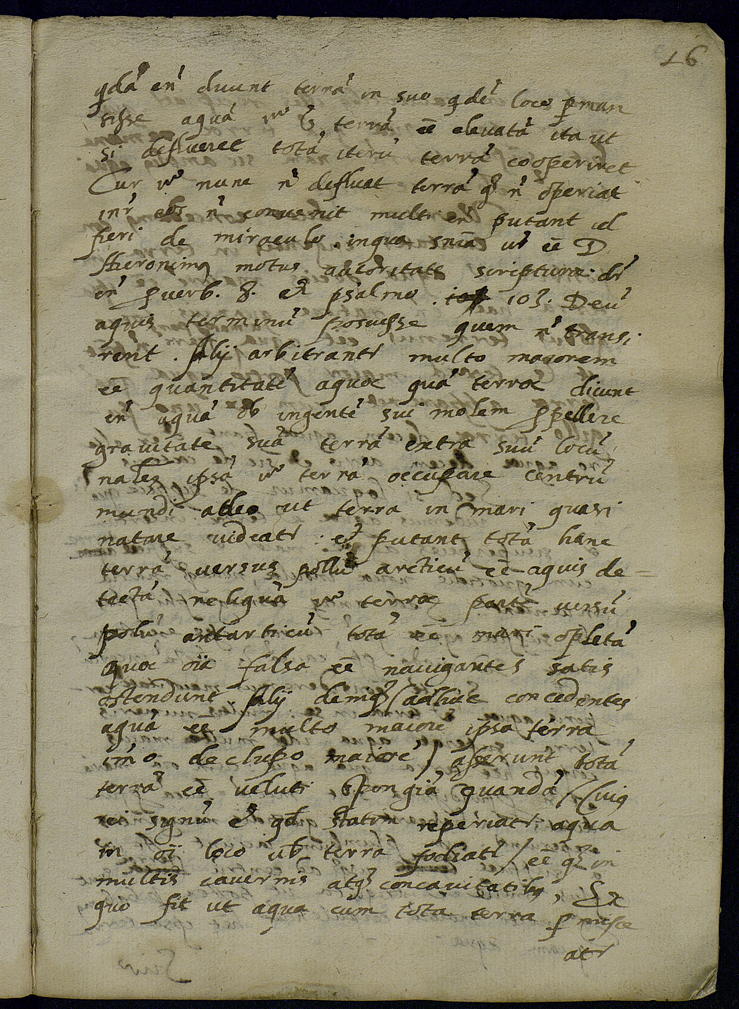 16
qdā en̄ dicunt terrā in suo qdē loco pman
sisse aquā v̄o terrā eē elevatā ita ut
si deflueret totā iterū terrā cooperiret
Cur v̄o nunc n̄ defluat terrā n̄ operiat
n̄ convenit multi en̄ putant vel
fieri de miraculo in qua snīa vr̄ eē D
Hieronimq motus autoritate scripturae dr̄
en̄ pverb. 8. et psalmo 103. Deū
aquis terminū posuisse quem n̄ transi
rent. Alij arbitrantr multo maiorem
eē quantitatē aquae quā terrae dicunt
en̄ aquā ob ingentē sui molem ppellere
gravitate suā terrā extra suū locū
nalem ipsā v̄o terrā occupare centrū
mundi adeo ut terra in mari quasi
natare videatr: et putant totā hanc
terrā versus polū arcticū eē aquis de=
tectā reliquā v̄o terrae partē versū
polū antarticū totā eē mari opletā
quae oīa falsa eē navigantes satis
ostendunt. Alij deniq concedentes
aquā eē multo maiorē ipsa terra
imo decuplo maiorē) asserunt totā
terrā eē veluti spongiā quandā (cuiq
rei signū et qd statim reperiatr aqua
in oī loco ubi terra fodiatr) eē q in
multis cavernis atq concavitatibq, Ex
quo fit ut aqua cum tota terra pmisce
atr